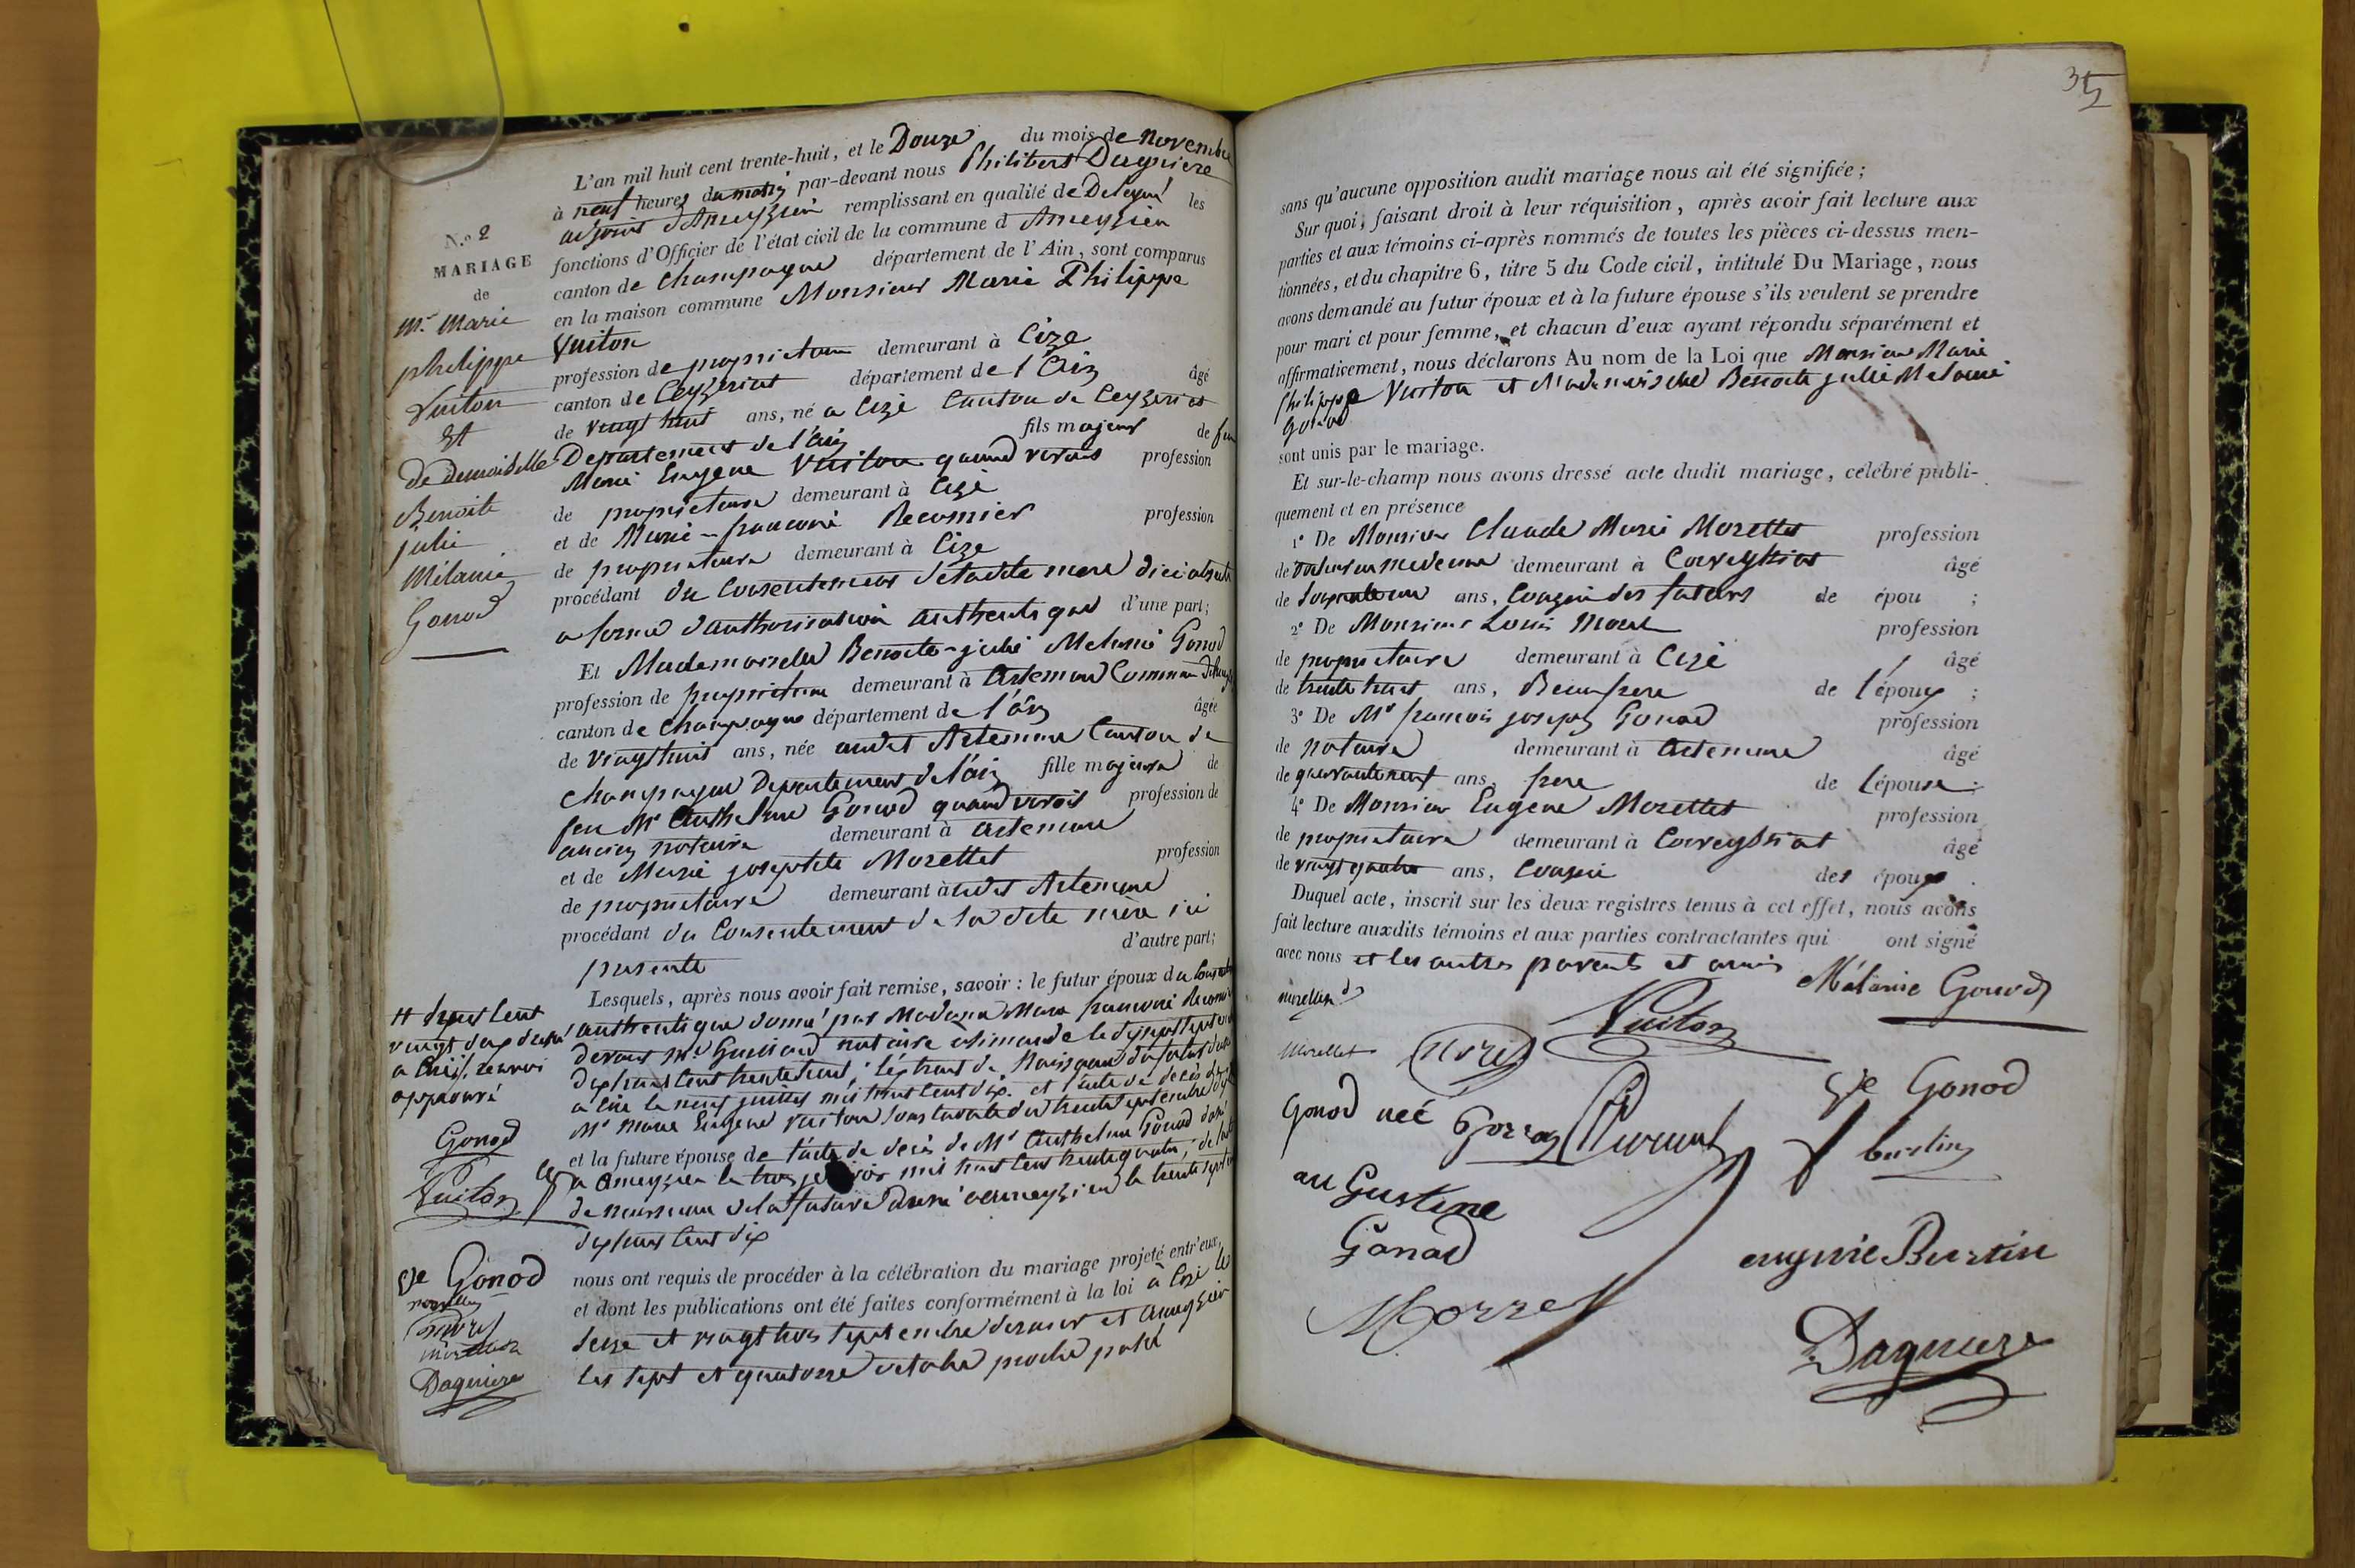 N.º 2
MARIAGE
de
Mr. Marie
philippe
Vuiton
Et
de demoiselle
Benoite
julie
Mélanie
Gonod
L'an mil huit cent trente-huit, et le Douze du mois de Novembre
à neuf heures du matin par-devant nous Philibert Dagniere
adjoint d'Ameyzieu remplissant en qualité de Délégué les
fonctions d'Officier de l'état civil de la commune d Ameyzieu
canton de Champagne département de l'Ain, sont comparus
en la maison commune Monsieur Marie Philippe
Vuiton
profession de proprietaire demeurant à Cize
canton de Ceyzeriat département de l'Ain âgé
de vingt huit ans, né a Cize Canton de Ceyzeriat
Departement de l'ain fils majeur de feu
Marie Eugene Vuiton quand vivait profession
de proprietaire demeurant à Cize
et de Marie-francoise Recomier profession
de proprietaire demeurant à Cize
procédant du Consentement de sadite mere d'ici absente
a forme d'authorisation authentique d'une part;
Et Mademoiselle Benoite-julie Melanie Gonod
profession de proprietaire demeurant à Artemare Commune
canton de Champagne département de l'ain âgée
de vingt huit ans, née audit Artemare Canton de
Champagne Departement de l'ain fille majeure de
feu Mr Anthelme Gonod quand vivait profession de
ancien notaire demeurant à artemare
et de Marie josephte Morettet profession
de proprietaire demeurant à audit Artemare
procédant du Consentement de sa dite mère ici
d'autre part;
presente
Lesquels, après nous avoir fait remise, savoir: le futur époux du
authentique donné par Madame Marie francoise
devant Me notaire a le dix sept
dix huit cent trente huit, l'extrait de Naissance du futur
a Cize le neuf juillet mil huit cent dix. et l'acte de décès
Mr Marie Eugene Vuiton sous la date du trente septembre
et la future épouse de l'acte de décès de Mr Anthelme Gonod
a Ameyzieu le trois mil huit cent trente quatre, de
de naissance de la future Datté a ameyzieu le trente
dix huit cent dix
nous ont requis de procéder à la célébration du mariage projeté entr'eux,
et dont les publications ont été faites conformément à la loi à Cize le
seize et vingt trois septembre dernier et ameyzieu
les sept et quatorze octobre proche passé
# huit cent
vingt
a Cize, renvoi
approuvé
Gonod
Vuiton
Ve Gonod
Dagniere
35
sans qu'aucune opposition audit mariage nous ait été signifiée;
Sur quoi, faisant droit à leur réquisition, après avoir fait lecture aux
parties et aux témoins ci-après nommés de toutes les pièces ci-dessus men-
tionnées, et du chapitre 6, titre 5 du Code civil, intitulé Du Mariage, nous
avons demandé au futur époux et à la future épouse s'ils veulent se prendre
pour mari et pour femme, et chacun d'eux ayant répondu séparément et
affirmativement, nous déclarons Au nom de la Loi que Monsieur Marie
Philippe Vuiton et Mademoiselle Benoite julie Melanie
Gonod
sont unis par le mariage.
Et sur-le-champ nous avons dressé acte dudit mariage, célébré publi-
quement et en présence
1º De Monsieur Claude Marie Morettet profession
de docteur en medecine demeurant à Corveyssiat âgé
de ans, Cousin des futurs de épou ;
2º De Monsieur Louis profession
de proprietaire demeurant à Cize âgé
de trente huit ans, Beaufrere de l'époux ;
3º De Mr francois joseph Gonod profession
de notaire demeurant à Artemare âgé
de quarante neuf ans, frere de l'épouse ;
4º De Monsieur Eugene Morettet profession
de proprietaire demeurant à Corveyssiat âgé
de vingt quatre ans, Cousin des époux .
Duquel acte, inscrit sur les deux registres tenus à cet effet, nous avons
fait lecture auxdits témoins et aux parties contractantes qui ont signé
avec nous et les autres parents et amis
Mélanie Gonod
Vuiton
Morettet
Gonod née
Ve Gonod
burtin
augustine
Gonod
eugenie Burtin
Dagniere